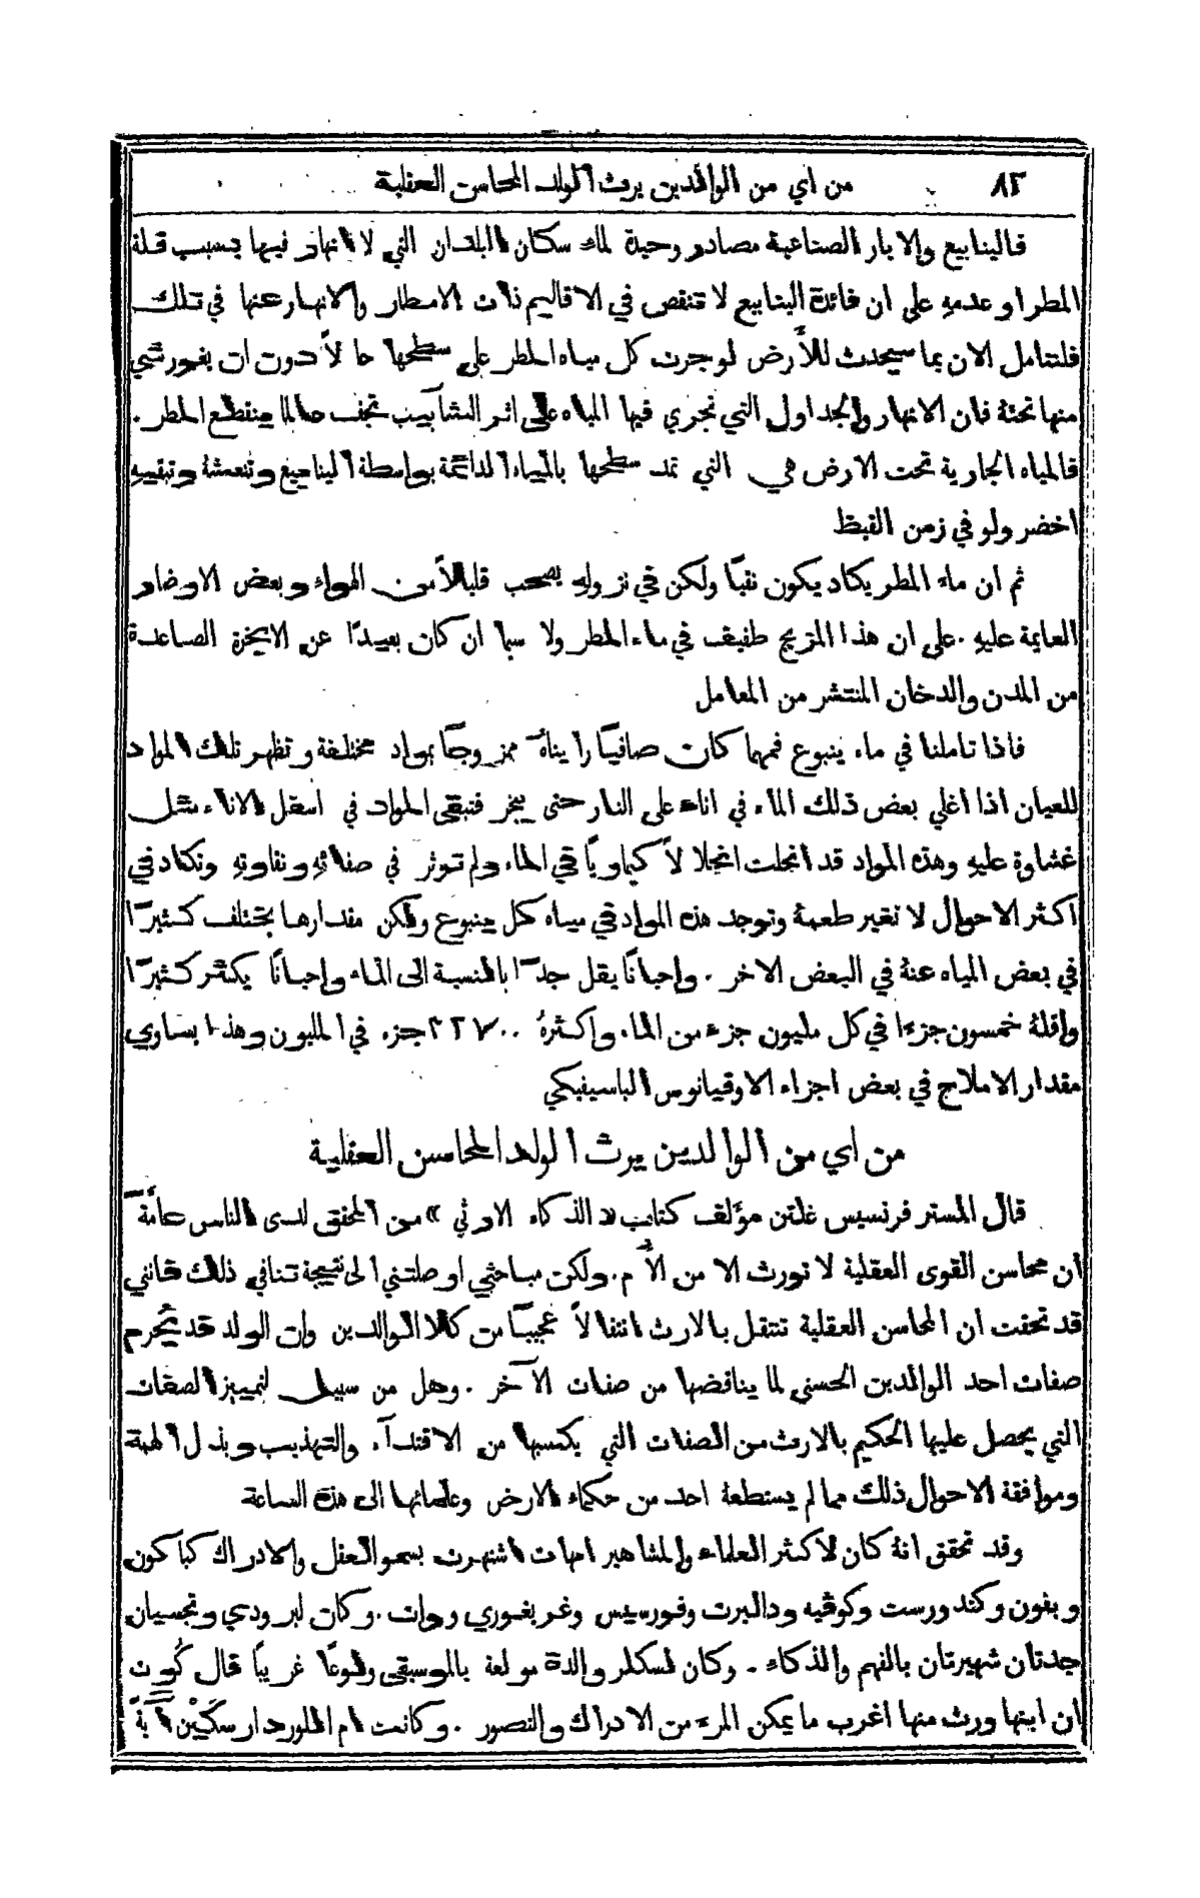 ٨٢ من اي من الوالدين يرث الولد المحاسن العقلية
فالينابيع والابار الصناعية مصادر وحيدة لماء سكان البلدان التي لا انهار فيها بسبب قلة
المطر او عدمهِ على ان فائدة الينابيع لا تنقص في الاقاليم ذات الامطار والانهار عنها في تلك
فلنتامل الان بما سيحدث للأرض لو جرت كل مياه المطر على سطحها حالاً دون ان يغور شي
منها تحتهُ فان الانهار والجداول التي تجري فيها المياه على اثر الشآبيب تجف حالما ينقطع المطر.
فالمياه الجارية تحت الارض هي التي تمد سطحها بالمياه الدائمة بواسطة الينابيع وتنعشهُ وتبقيهِ
اخضر ولو في زمن القيظ
ثم ان ماء المطر يكاد يكون نقيًا ولكن في نزولهِ يصحب قليلاً من الهواء وبعض الاوضار
العايمة عليهِ . على ان هذا المزيج طفيف في ماء المطر ولا سيما ان كان بعيدًا عن الابخرة الصاعدة
من المدن والدخان المنتشر من المعامل
فاذا تاملنا في ماء ينبوع فمهما كان صافيًا رايناهُ ممزوجًا بمواد مختلفة وتظهر تلك المواد
للعيان اذا اغلي بعض ذلك الماء في اناء على النار حتى يبخر فتبقى المواد في اسفل الاناء مثل
غشاوة عليهِ وهذه المواد قد انحلت انحلالاً كيماويًا في الماء ولم توثر في صفائهِ ونقاوتهِ وتكاد في
اكثر الاحوال لا تغير طعمهُ وتوجد هذه المواد في مياه كل ينبوع ولكن مقدارها يختلف كثيرًا
في بعض المياه عنهُ في البعض الاخر . واحيانًا يقل جدًا بالنسبة الى الماء واحيانًا يكثر كثيرًا
واقلهُ خمسون جزءًا في كل مليون جزء من الماء واكثرهُ ٢٢٧٠٠ جزء في المليون وهذا يساوي
مقدار الاملاح في بعض اجزاء الاوقيانوس الباسيفيكي
من اي من الوالدين يرث الولد المحاسن العقلية
قال المستر فرنسيس غلتن مؤلف كتاب « الذكاء الارثي » من المحقق لدى الناس عامَّةً
ان محاسن القوى العقلية لا تورث الا من الاُم . ولكن مباحثي اوصلتني الى نتيجة تنافي ذلك فانني
قد تحققت ان المحاسن العقلية تنتقل بالارث انتقالاً عجيبًا من كلا الوالدين وان الولد قد يُحرم
صفات احد الوالدين الحسنى لما يناقضها من صفات الآخر . وهل من سبيل لتمييز الصفات
التي يحصل عليها الحكيم بالارث من الصفات التي يكتسبها من الاقتدآء والتهذيب وبذل الهمة
وموافقة الاحوال ذلك مما لم يستطعهُ احد من حكماء الارض وعلمائها الى هذه الساعة
وقد تحقق انهُ كان لاكثر العلماء والمشاهير امهات اشتهرت بسمو العقل والادراك كباكون
وبفون وكندورست وكوفيه ودالبرت وفورسيس وغريغوري ووات . وكان لبرودي وتجسيان
جدتان شهيرتان بالفهم والذكاء . وكان لسكلر والدة مولعة بالموسيقى ولوعًا غريبًا قال كُوت
ان ابنها ورث منها اغرب ما يمكن المرء من الادراك والتصور . وكانت ام اللورد ارسكين آيةً